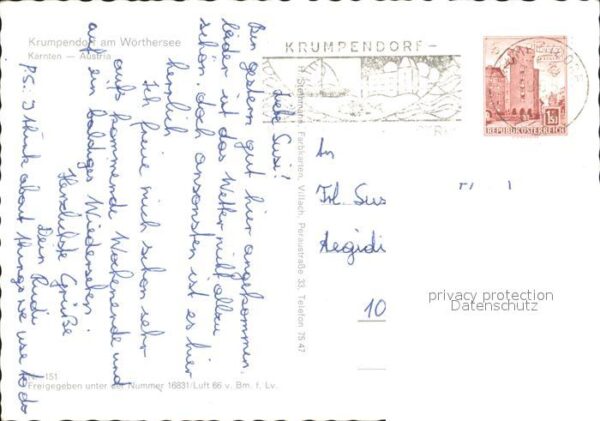 Krumpendorf am Wörthersee
Kärnten — Austria
KRUMPENDORF —
REPUBLIK ÖSTERREICH
1.50
Liebe Susi!
Bin gestern gut hier angekommen.
Leider ist das Wetter nicht allzu
schön, doch ansonsten ist es hier
herrlich.
Ich freue mich schon sehr
aufs kommende Wochenende und
auf ein baldiges Wiedersehen.
Herzlichste Grüße
Dein Rudi
P.S. I think about things we use to do
Farbkarten, Villach, Peraustraße 33, Telefon 75 47
An
Frl. Sus
Aegidi
10
privacy protection
Datenschutz
151
Freigegeben unter der Nummer 16831/Luft 66 v. Bm. f. Lv.